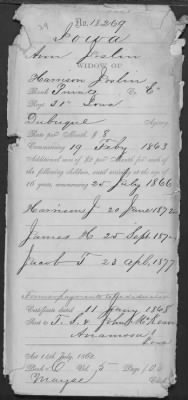 No. 18269
Iowa
Ann Joslin
WIDOW OF
Harrison Joslin
Rank Private Co. E
Regt 31st Iowa
Dubuque Agency
Rate per Month, $ 8
Commencing 19 Feby 1863
Additional sum of $2 per Month for each of
the following children, until arriving at the age of
16 years, commencing 25 July 1866
Harrison J 20 June 187
James H 25 Sept 187
Jacob T 23 Apl 1877
Certificate dated 11 1865
Sent to
Anamosa
Iowa
Act 14th July, 1862.
Book C Vol. 5 Page
Clerk